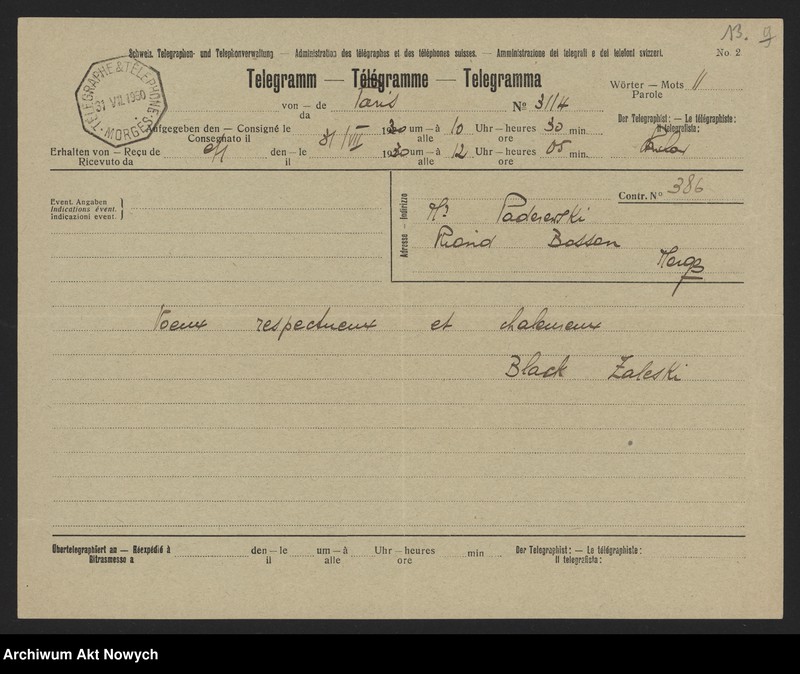 13. g
Schweiz. Telegraphen- und Telephonverwaltung — Administration des télégraphes et des téléphones suisses. — Amministrazione dei telegrafi e dei telefoni svizzeri. No. 2
TELEGRAPHE & TELEPHONE
31 VII 1930
MORGES
Telegramm — Télégramme — Telegramma
Wörter — Mots 11
Parole
von — de Paris № 3114
da
Der Telegraphist: — Le télégraphiste:
Il telegrafista:
Aufgegeben den — Consigné le 31/VII 1930 um — à 10 Uhr — heures 30 min.
Consegnato il alle ore
Erhalten von — Reçu de den — le 1930 um — à 12 Uhr — heures 05 min.
Ricevuto da il alle ore
Event. Angaben
Indications évent.
Indicazioni event.
Adresse — Indirizzo
Contr. N° 386
Mr Paderewski
Riond Bosson
Morges
Voeux respectueux et chaleureux
Black Zaleski
Übertelegraphiert an — Réexpédié à den — le um — à Uhr — heures min Der Telegraphist: — Le télégraphiste:
Ritrasmesso a il alle ore Il telegrafista:
Archiwum Akt Nowych